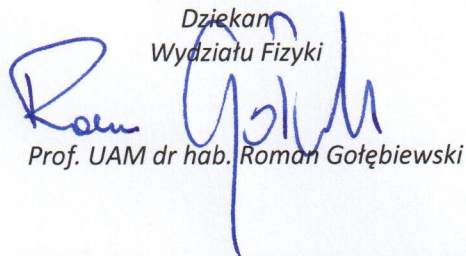 Dziekan
Wydziału Fizyki
Prof. UAM dr hab. Roman Gołębiewski